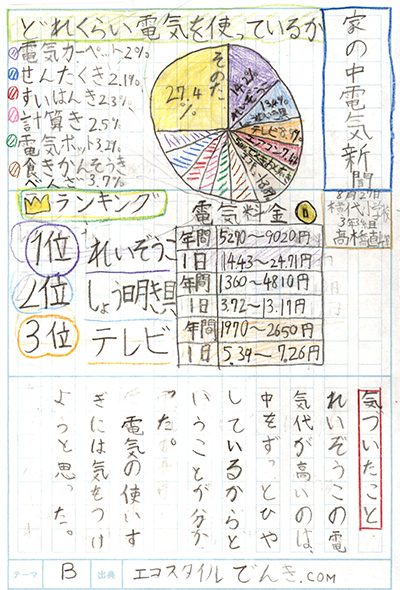 家の中電気新聞
どれくらい電気を使っているか
電気カーペット2%
せんたくき2.1%
すいはんき2.3%
計算き2.5%
電気ポット3.2%
食きかんそうき
べんざ3.7%
そのた
27.4
%
14.2%
13.4%
テレビ8.9%
エアコン7.4%
8月27日
3年3組
ランキング
1位 れいぞうこ
2位 しょう明き具
3位 テレビ
電気料金
年間 5290〜9020円
1日 14.43〜24.71円
年間 1360〜4810円
1日 3.72〜13.17円
年間 1970〜2650円
1日 5.39〜7.26円
気づいたこと
れいぞうこの電
気代が高いのは、
中をずっとひや
しているからと
いうことが分か
った。
電気の使いす
ぎには気をつけ
ようと思った。
テーマ B 出典 エコスタイルでんき.COM